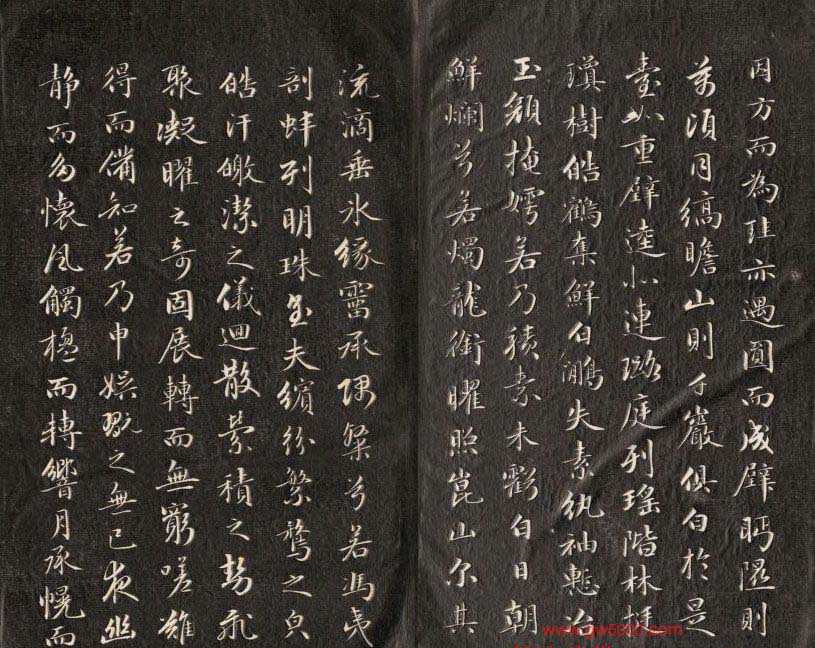 因方而為珪亦遇圓而成璧眄隰則
萬頃同縞瞻山則千巖俱白於是
臺如重璧逵似連璐庭列瑤階林挺
瓊樹皓鶴奪鮮白鷳失素紈袖慙冶
玉顏掩嫮若乃積素未虧白日朝
鮮爛兮若燭龍銜曜照崑山尔其
流滴垂冰緣霤承隅粲兮若馮夷
剖蚌列明珠至夫繽紛繁騖之皃
皓汗皦潔之儀迴散縈積之勢飛
聚凝曜之奇固展轉而無窮嗟難
得而備知若乃申娛翫之無已夜幽
静而多懷風觸楹而轉響月承幌而